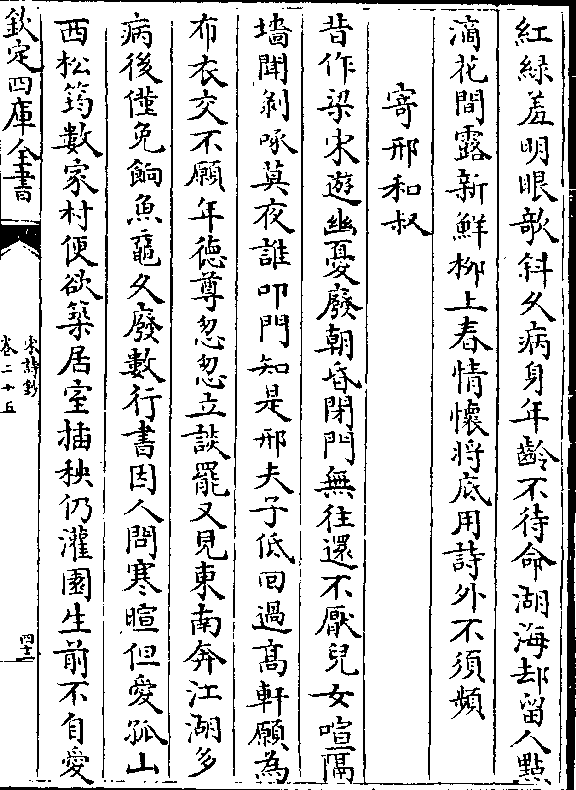 紅緑羞明眼欹斜久病身年齡不待命湖海却留人點
滴花間露新鮮柳上春情懷將底用詩外不須頻
寄邢和叔
昔作梁宋遊幽憂廢朝昏閉門無往還不厭兒女喧隔
墻聞剝啄莫夜誰叩門知是邢夫子低回過髙軒願為
布衣交不願年徳尊怱怱立談罷又見東南奔江湖多
病後僅免餉魚黿久廢數行書因人問寒暄但愛孤山
西松筠數家村便欲築居室插秧仍灌園生前不自愛
欽定四庫全書
宋詩鈔
卷二十五
四十二